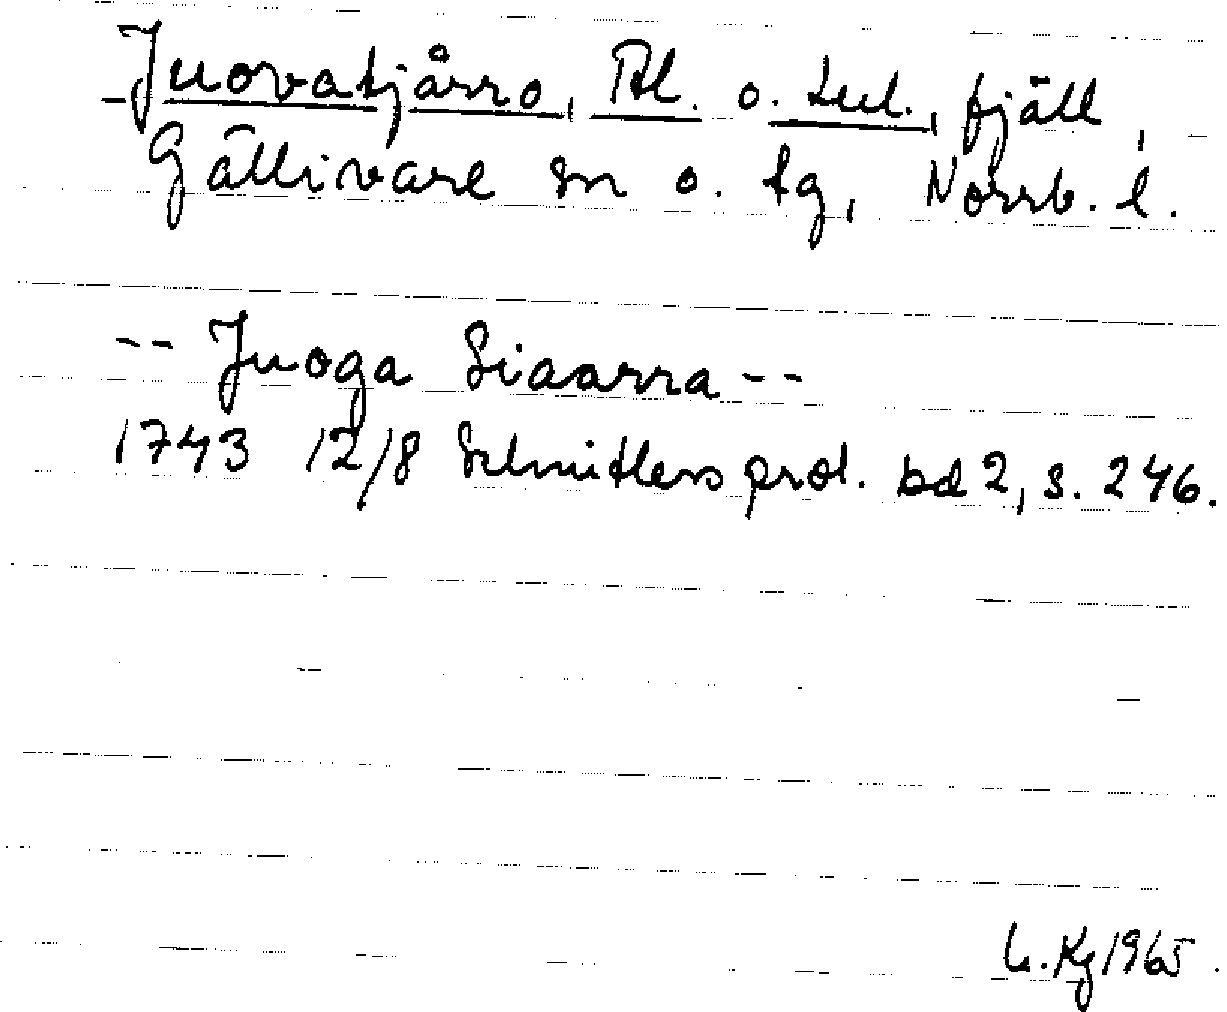 Juovatjårro, Pl. o. Lul., fjäll,
Gällivare sn o. tg, Norrb. l.
-- Juoga Siaarra --
1743 12/8 Schnitlers prot. bd 2, s. 246.
L. Kg 1965.